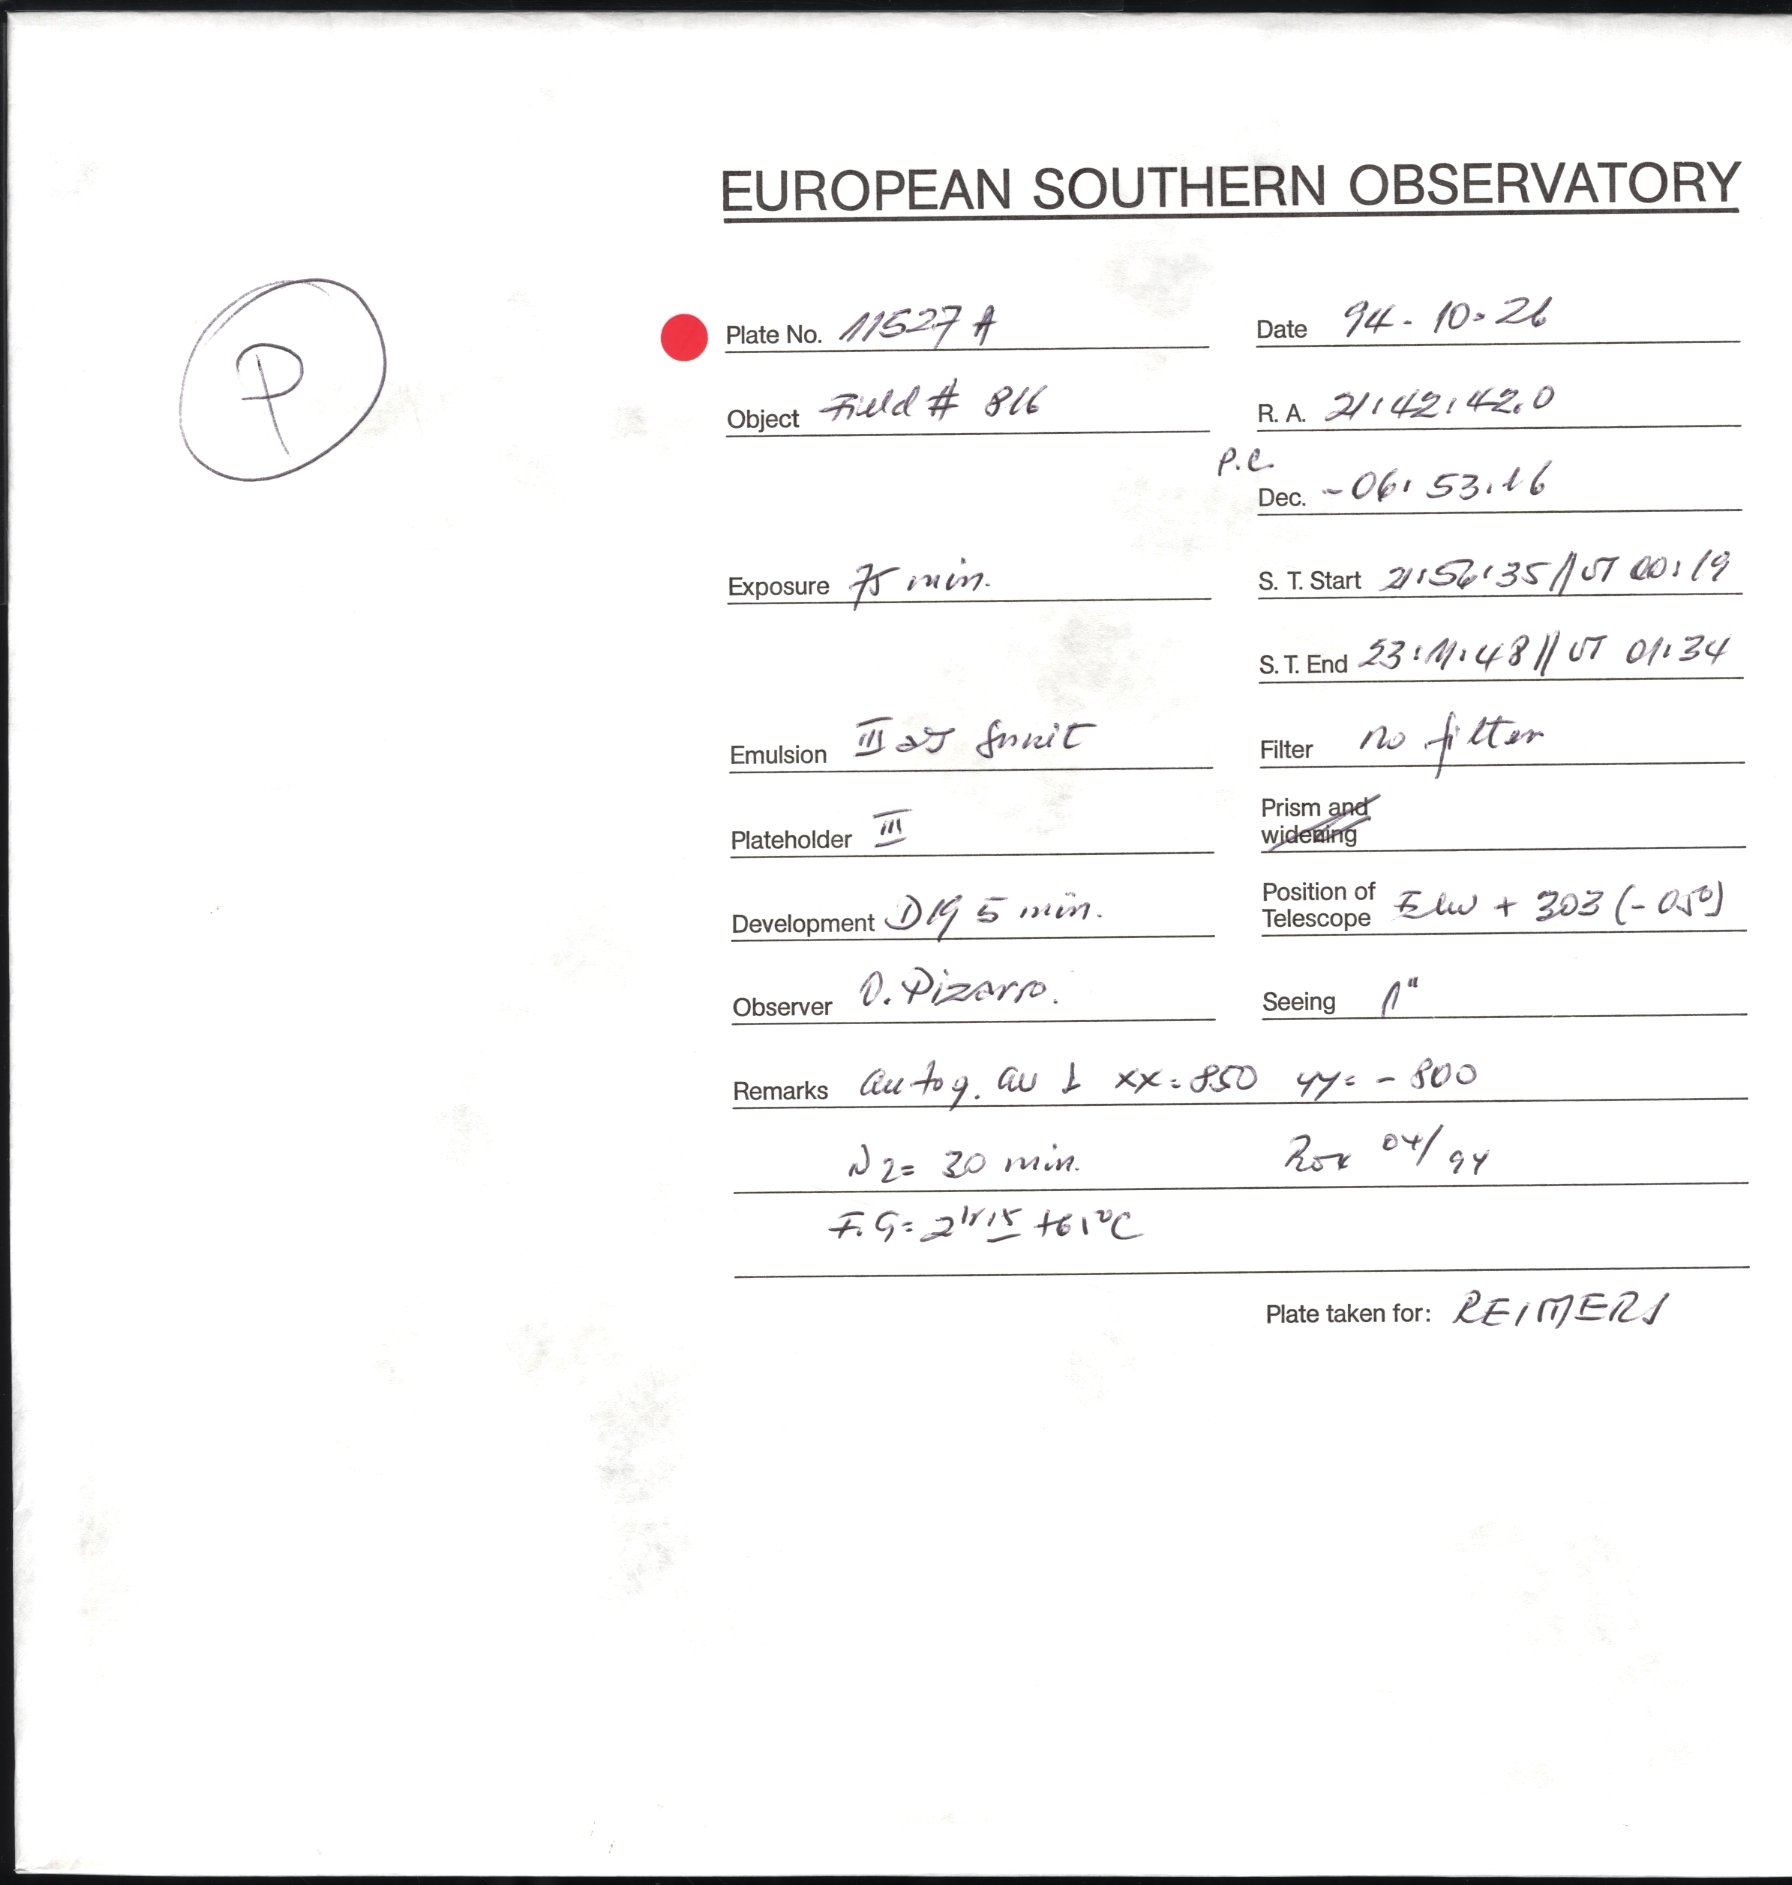 EUROPEAN SOUTHERN OBSERVATORY
P
Plate No. 11527 A
Date 94-10-26
Object Field # 816
R. A. 21:42:42.0
P.C.
Dec. -06:53:16
Exposure 75 min.
S. T. Start 21:56:35 // UT 00:19
S. T. End 23:11:48 // UT 01:34
Emulsion III aJ
Filter no filter
Plateholder III
Prism and
widening
Development D19 5 min.
Position of
Telescope + 303 (-050)
Observer O. Pizarro.
Seeing 1"
Remarks autog. xx=850 yy=-800
N2= 30 min.
04/94
F.G=
Plate taken for: REIMERS